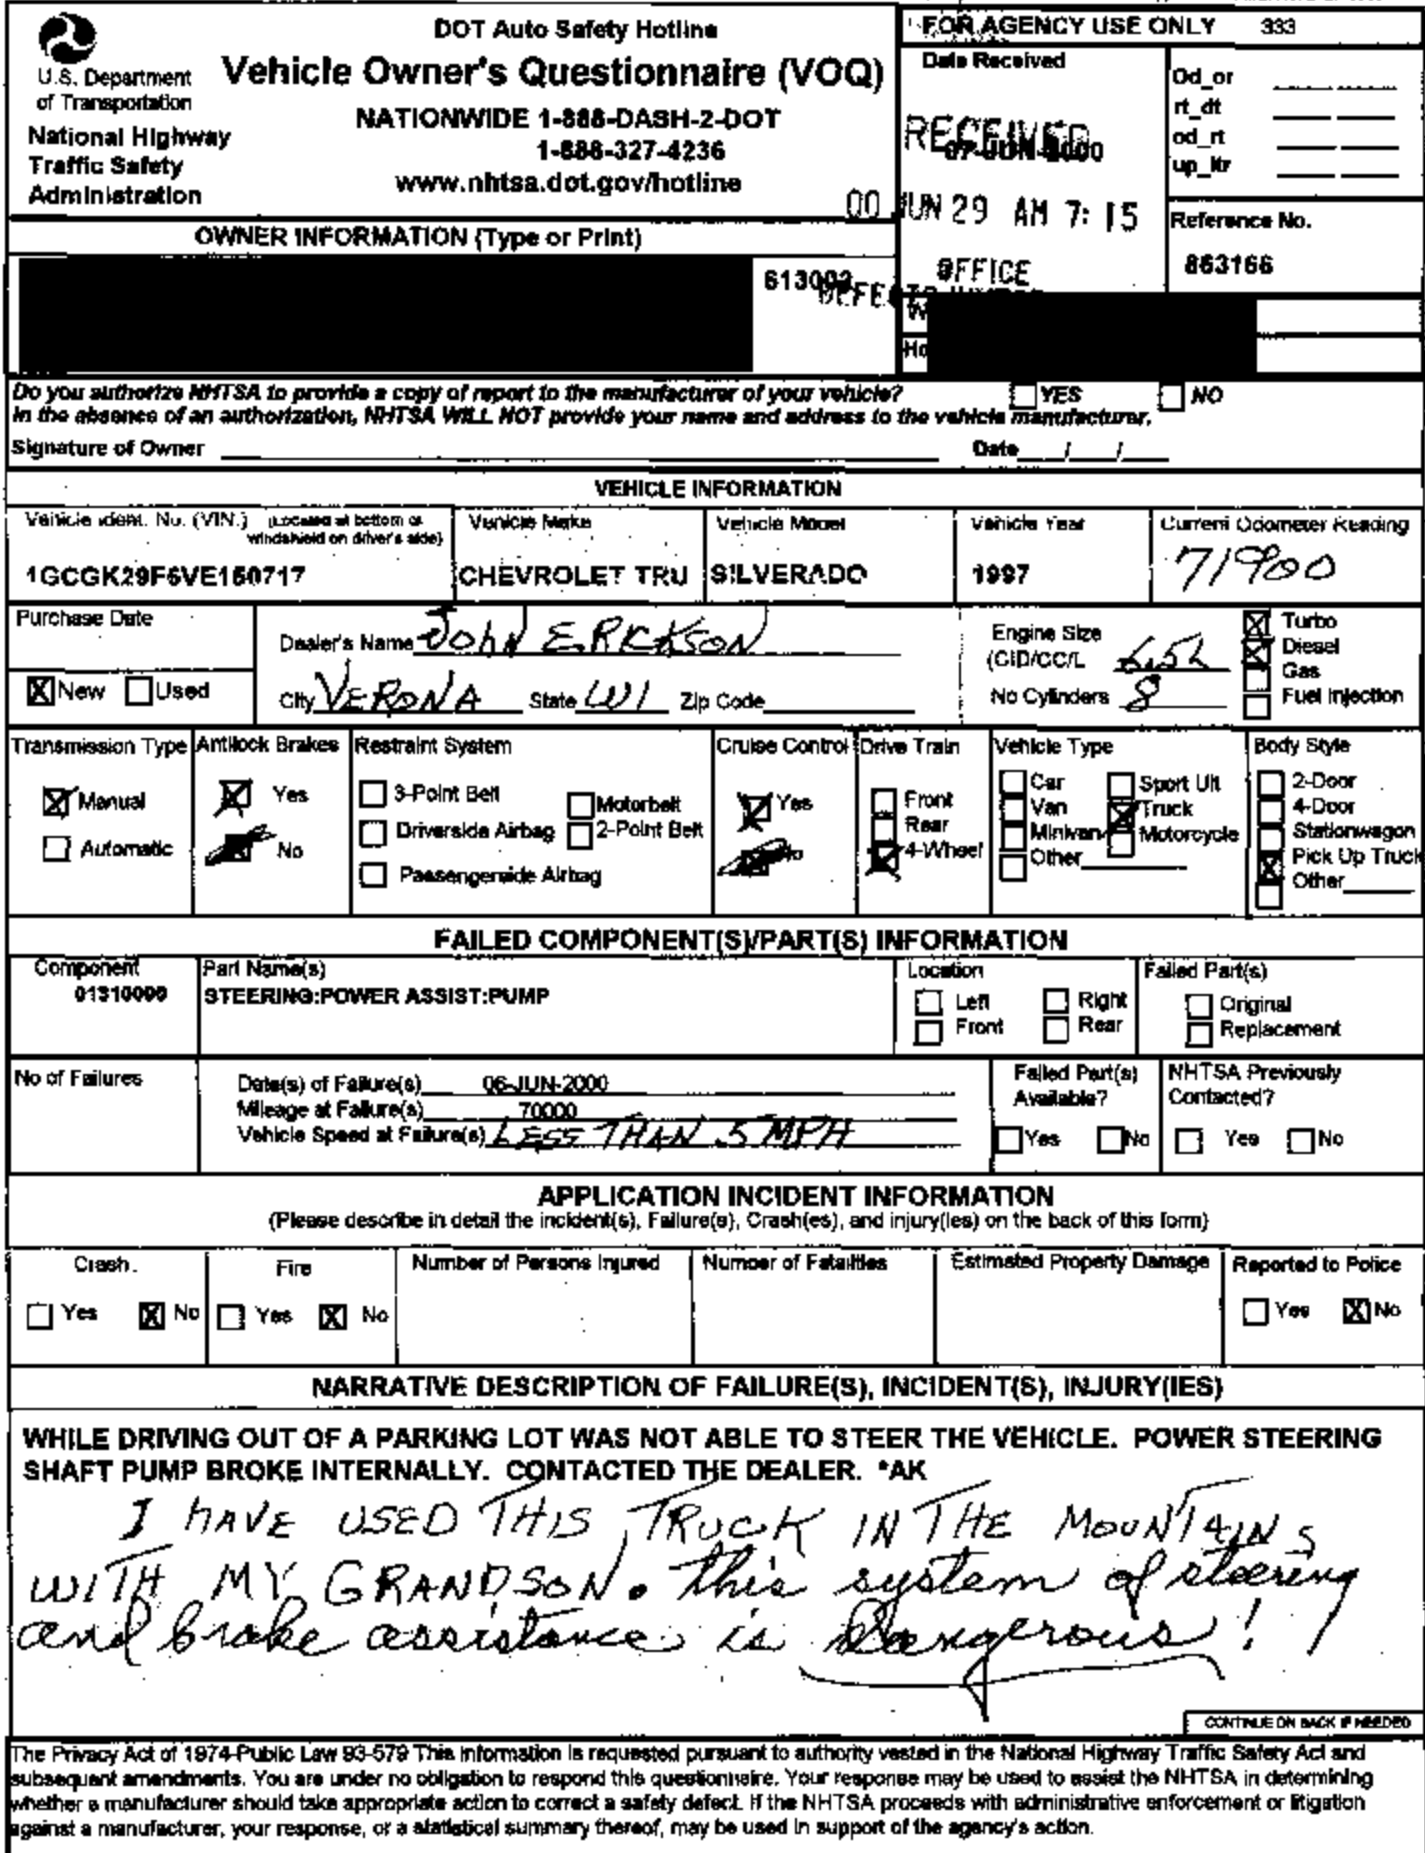 DOT Auto Safety Hotline
Vehicle Owner's Questionnaire (VOQ)
NATIONWIDE 1-888-DASH-2-DOT
1-888-327-4236
www.nhtsa.dot.gov/hotline
U.S. Department
of Transportation
National Highway
Traffic Safety
Administration
FOR AGENCY USE ONLY 333
Date Received
RECEIVED
07-JUN-2000
00 JUN 29 AM 7: 15
OFFICE
Od_or
rt_dt
od_rt
up_ltr
Reference No.
863166
OWNER INFORMATION (Type or Print)
Do you authorize NHTSA to provide a copy of report to the manufacturer of your vehicle? YES NO
In the absence of an authorization, NHTSA WILL NOT provide your name and address to the vehicle manufacturer.
Signature of Owner Date / /
VEHICLE INFORMATION
Vehicle Ident. No. (VIN.) (Located at bottom of
windshield on driver's side)
1GCGK29F6VE150717
Vehicle Make
CHEVROLET TRU
Vehicle Model
SILVERADO
Vehicle Year
1997
Current Odometer Reading
71900
Purchase Date
New Used
Dealer's Name JOHN ERICKSON
City VERONA State WI Zip Code
Engine Size
(CID/CC/L 6.5L
No Cylinders 8
Turbo
Diesel
Gas
Fuel Injection
Transmission Type
Manual
Automatic
Antilock Brakes
Yes
No
Restraint System
3-Point Belt
Driverside Airbag
Passengerside Airbag
Motorbelt
2-Point Belt
Cruise Control
Yes
No
Drive Train
Front
Rear
4-Wheel
Vehicle Type
Car
Van
Minivan
Other
Sport Ult
Truck
Motorcycle
Body Style
2-Door
4-Door
Stationwagon
Pick Up Truck
Other
FAILED COMPONENT(S)/PART(S) INFORMATION
Component
01310000
Part Name(s)
STEERING:POWER ASSIST:PUMP
Location
Left Right
Front Rear
Failed Part(s)
Original
Replacement
No of Failures
Date(s) of Failure(s) 06-JUN-2000
Mileage at Failure(s) 70000
Vehicle Speed at Failure(s) LESS THAN 5 MPH
Failed Part(s)
Available?
Yes No
NHTSA Previously
Contacted?
Yes No
APPLICATION INCIDENT INFORMATION
(Please describe in detail the incident(s), Failure(s), Crash(es), and injury(ies) on the back of this form)
Crash
Yes No
Fire
Yes No
Number of Persons Injured
Number of Fatalities
Estimated Property Damage
Reported to Police
Yes No
NARRATIVE DESCRIPTION OF FAILURE(S), INCIDENT(S), INJURY(IES)
WHILE DRIVING OUT OF A PARKING LOT WAS NOT ABLE TO STEER THE VEHICLE. POWER STEERING
SHAFT PUMP BROKE INTERNALLY. CONTACTED THE DEALER. *AK
I HAVE USED THIS TRUCK IN THE MOUNTAINS
WITH MY GRANDSON. this system of steering
and brake assistance is Dangerous!
CONTINUE ON BACK IF NEEDED
The Privacy Act of 1974-Public Law 93-579 This information is requested pursuant to authority vested in the National Highway Traffic Safety Act and
subsequent amendments. You are under no obligation to respond this questionnaire. Your response may be used to assist the NHTSA in determining
whether a manufacturer should take appropriate action to correct a safety defect. If the NHTSA proceeds with administrative enforcement or litigation
against a manufacturer, your response, or a statistical summary thereof, may be used in support of the agency's action.